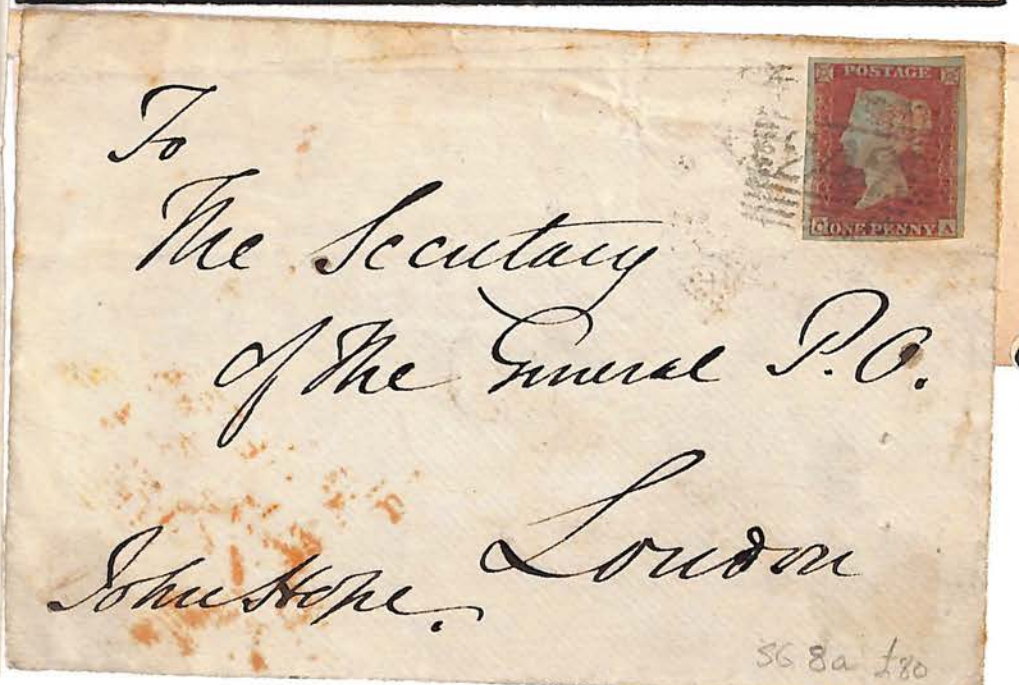 POSTAGE
C ONE PENNY A
To
The Secretary
of the General P.O.
London
John Hope.
SG 8a £80